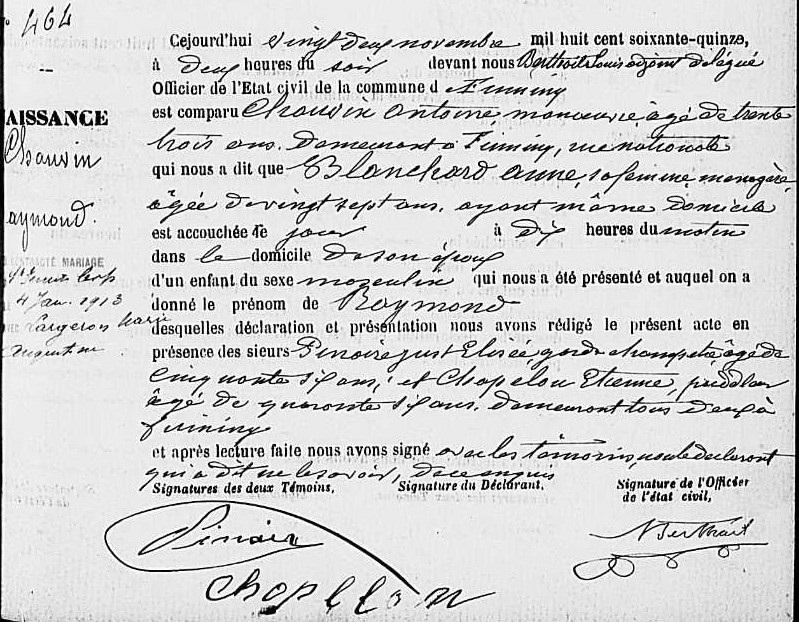 464
NAISSANCE
Chauvin
Raymond.
CONTRACTÉ MARIAGE
4 Jan. 1913
Largeron Marie
Augustine
Cejourd'hui vingt deux novembre mil huit cent soixante-quinze,
à deux heures du soir devant nous Berthoit Louis adjoint délégué
Officier de l'Etat civil de la commune d Firminy
est comparu Chauvin Antoine, manoeuvre, âgé de trente
trois ans. demeurant à Firminy, rue nationale
qui nous a dit que Blanchard Anne, sa femme menagère,
âgée de vingt sept ans, ayant même domicile
est accouchée ce jour à dix heures du matin
dans le domicile de son époux
d'un enfant du sexe masculin qui nous a été présenté et auquel on a
donné le prénom de Raymond
desquelles déclaration et présentation nous avons rédigé le présent acte en
présence des sieurs Pinoire just Elisée, garde champêtre, âgé de
cinquante six ans, et Chapelon Etienne, âgé de quarante six ans. demeurant tous deux à
firminy
et après lecture faite nous avons signé avec les témoins, non le déclarant
qui a dit ne le savoir, de ce enquis
Signatures des deux Témoins, Signature du Déclarant. Signature de l'Officier
de l'état civil,
Pinoire
Chapellon